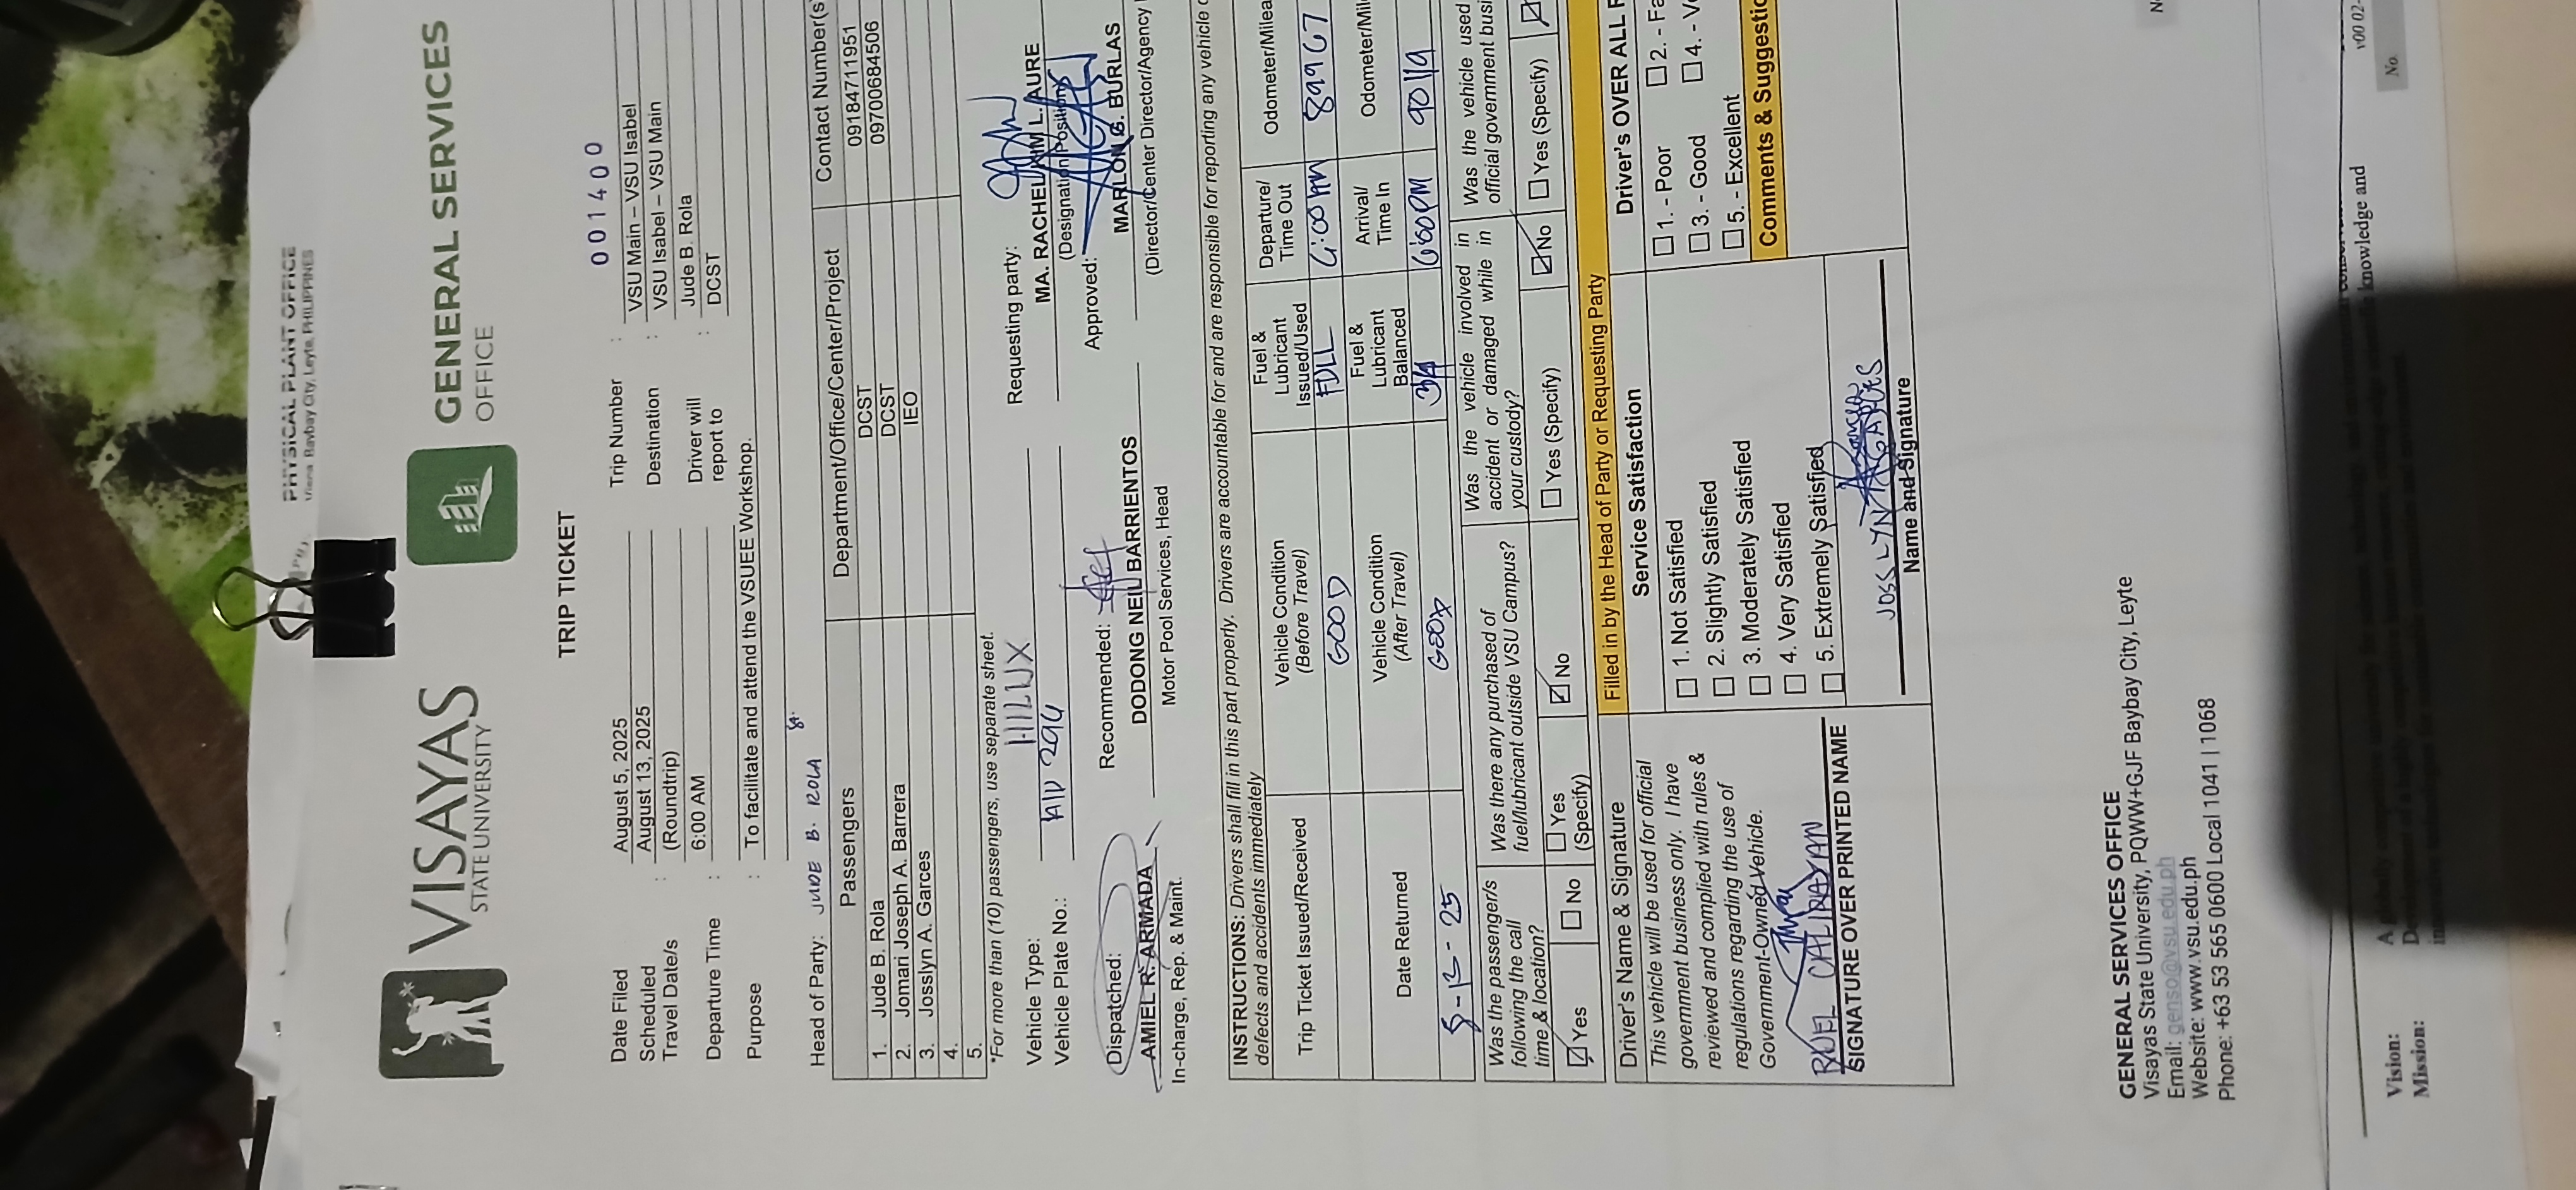 PHYSICAL PLANT OFFICE
Visca, Baybay City, Leyte, PHILIPPINES
VISAYAS
STATE UNIVERSITY
GENERAL SERVICES
OFFICE
TRIP TICKET
001400
Date Filed August 5, 2025 Trip Number :
Scheduled Travel Date/s : August 13, 2025 (Roundtrip) Destination : VSU Main – VSU Isabel
VSU Isabel – VSU Main
Departure Time : 6:00 AM Driver will report to : Jude B. Rola
DCST
Purpose : To facilitate and attend the VSUEE Workshop.
Head of Party: JUDE B. ROLA
Passengers Department/Office/Center/Project Contact Number(s)
1. Jude B. Rola DCST 09184711951
2. Jomari Joseph A. Barrera DCST 09700684506
3. Josslyn A. Garces IEO
4.
5.
*For more than (10) passengers, use separate sheet.
Vehicle Type: HILUX Requesting party:
Vehicle Plate No.: MA. RACHEL KIM L. AURE
(Designation/Position)
Dispatched: Recommended: Approved:
AMIEL R. ARMADA DODONG NEIL BARRIENTOS MARLON G. BURLAS
In-charge, Rep. & Maint. Motor Pool Services, Head (Director/Center Director/Agency
INSTRUCTIONS: Drivers shall fill in this part properly. Drivers are accountable for and are responsible for reporting any vehicle
defects and accidents immediately
Trip Ticket Issued/Received Vehicle Condition (Before Travel) Fuel & Lubricant Issued/Used Departure/ Time Out Odometer/Milea
GOOD FULL 6:00AM 89967
Date Returned Vehicle Condition (After Travel) Fuel & Lubricant Balanced Arrival/ Time In Odometer/Mil
8-13-25 GOOD 3/4 6:00PM 90119
Was the passenger/s following the call time & location?
Yes No
Was there any purchased of fuel/lubricant outside VSU Campus?
Yes (Specify) No
Was the vehicle involved in accident or damaged while in your custody?
Yes (Specify) No
Was the vehicle used in official government busi
Yes (Specify)
Driver's Name & Signature
This vehicle will be used for official
government business only. I have
reviewed and complied with rules &
regulations regarding the use of
Government-Owned Vehicle.
SIGNATURE OVER PRINTED NAME
Filled in by the Head of Party or Requesting Party
Service Satisfaction
1. Not Satisfied
2. Slightly Satisfied
3. Moderately Satisfied
4. Very Satisfied
5. Extremely Satisfied
JOSSLYN A. GARCES
Name and Signature
Driver's OVER ALL
1. - Poor 2. - Fa
3. - Good 4. - V
5. - Excellent
Comments & Suggestio
GENERAL SERVICES OFFICE
Visayas State University, PQWW+GJF Baybay City, Leyte
Email: genso@vsu.edu.ph
Website: www.vsu.edu.ph
Phone: +63 53 565 0600 Local 1041 | 1068
knowledge and
Vision: A
Mission:
v00 02-
No.